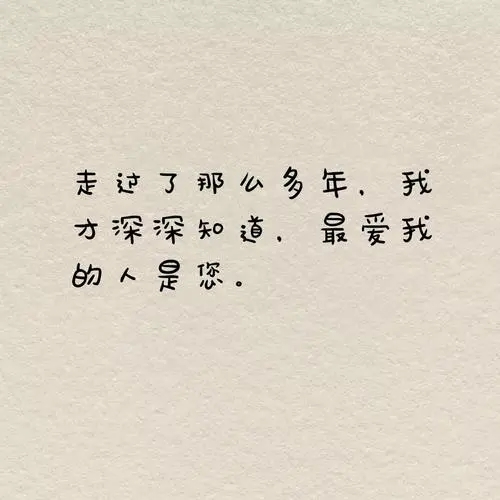 走过了那么多年，我
才深深知道，最爱我
的人是您。